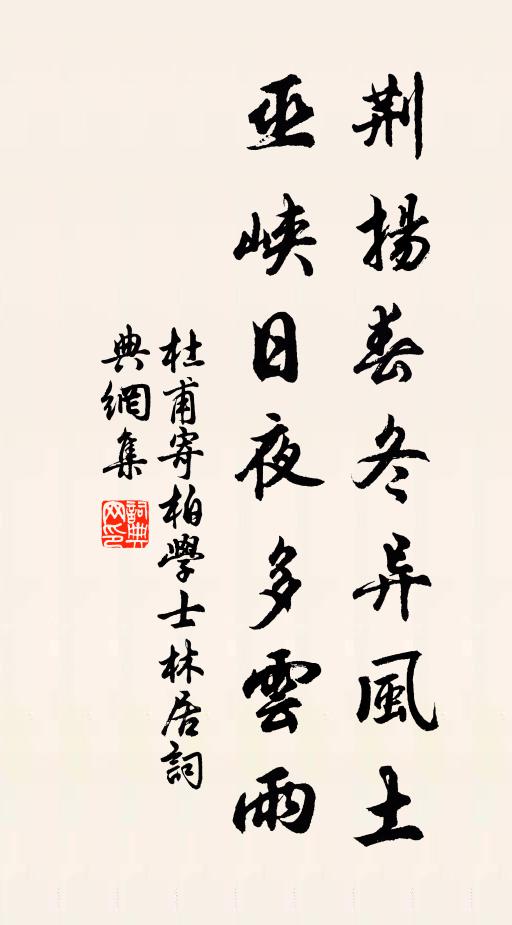 荆揚春冬异風土
巫峽日夜多雲雨
杜甫寄柏學士林居詞
典網集
詞典
网印